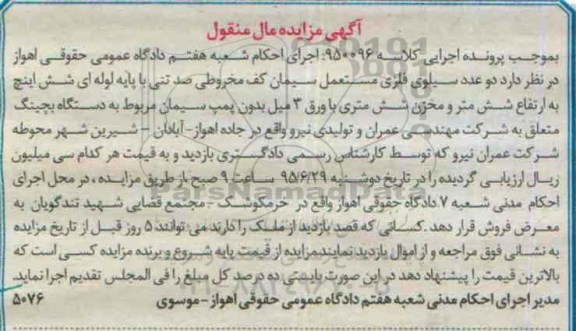 آگهی مزایده مال منقول
بموجب پرونده اجرایی کلاسه ۹۵۰۰۹۶ اجرای احکام شعبه هفتم دادگاه عمومی حقوقی اهواز
در نظر دارد دو عدد سیلوی فلزی مستعمل سیمان کف مخروطی صد تنی با پایه لوله ای شش اینچ
به ارتفاع شش متر و مخزن شش متری با ورق ۳ میل بدون پمپ سیمان مربوط به دستگاه بچینگ
متعلق به شرکت مهندسی عمران و تولیدی نیرو واقع در جاده اهواز- آبادان - شیرین شهر محوطه
شرکت عمران نیرو که توسط کارشناس رسمی دادگستری بازدید و به قیمت هر کدام سی میلیون
ریال ارزیابی گردیده را در تاریخ دوشنبه ۹۵/۶/۲۹ ساعت ۹ صبح از طریق مزایده ، در محل اجرای
احکام مدنی شعبه ۷ دادگاه حقوقی اهواز واقع در خرمکوشک - مجتمع قضایی شهید تندگویان به
معرض فروش قرار دهد .کسانی که قصد بازدید از ملک را دارند می توانند ۵ روز قبل از تاریخ مزایده
به نشانی فوق مراجعه و از اموال بازدید نمایند.مزایده از قیمت پایه شروع و برنده مزایده کسی است که
بالاترین قیمت را پیشنهاد دهد در این صورت بایستی ده درصد کل مبلغ را فی المجلس تقدیم اجرا نماید.
مدیر اجرای احکام مدنی شعبه هفتم دادگاه عمومی حقوقی اهواز - موسوی ۵۰۷۶
ParsNamadData